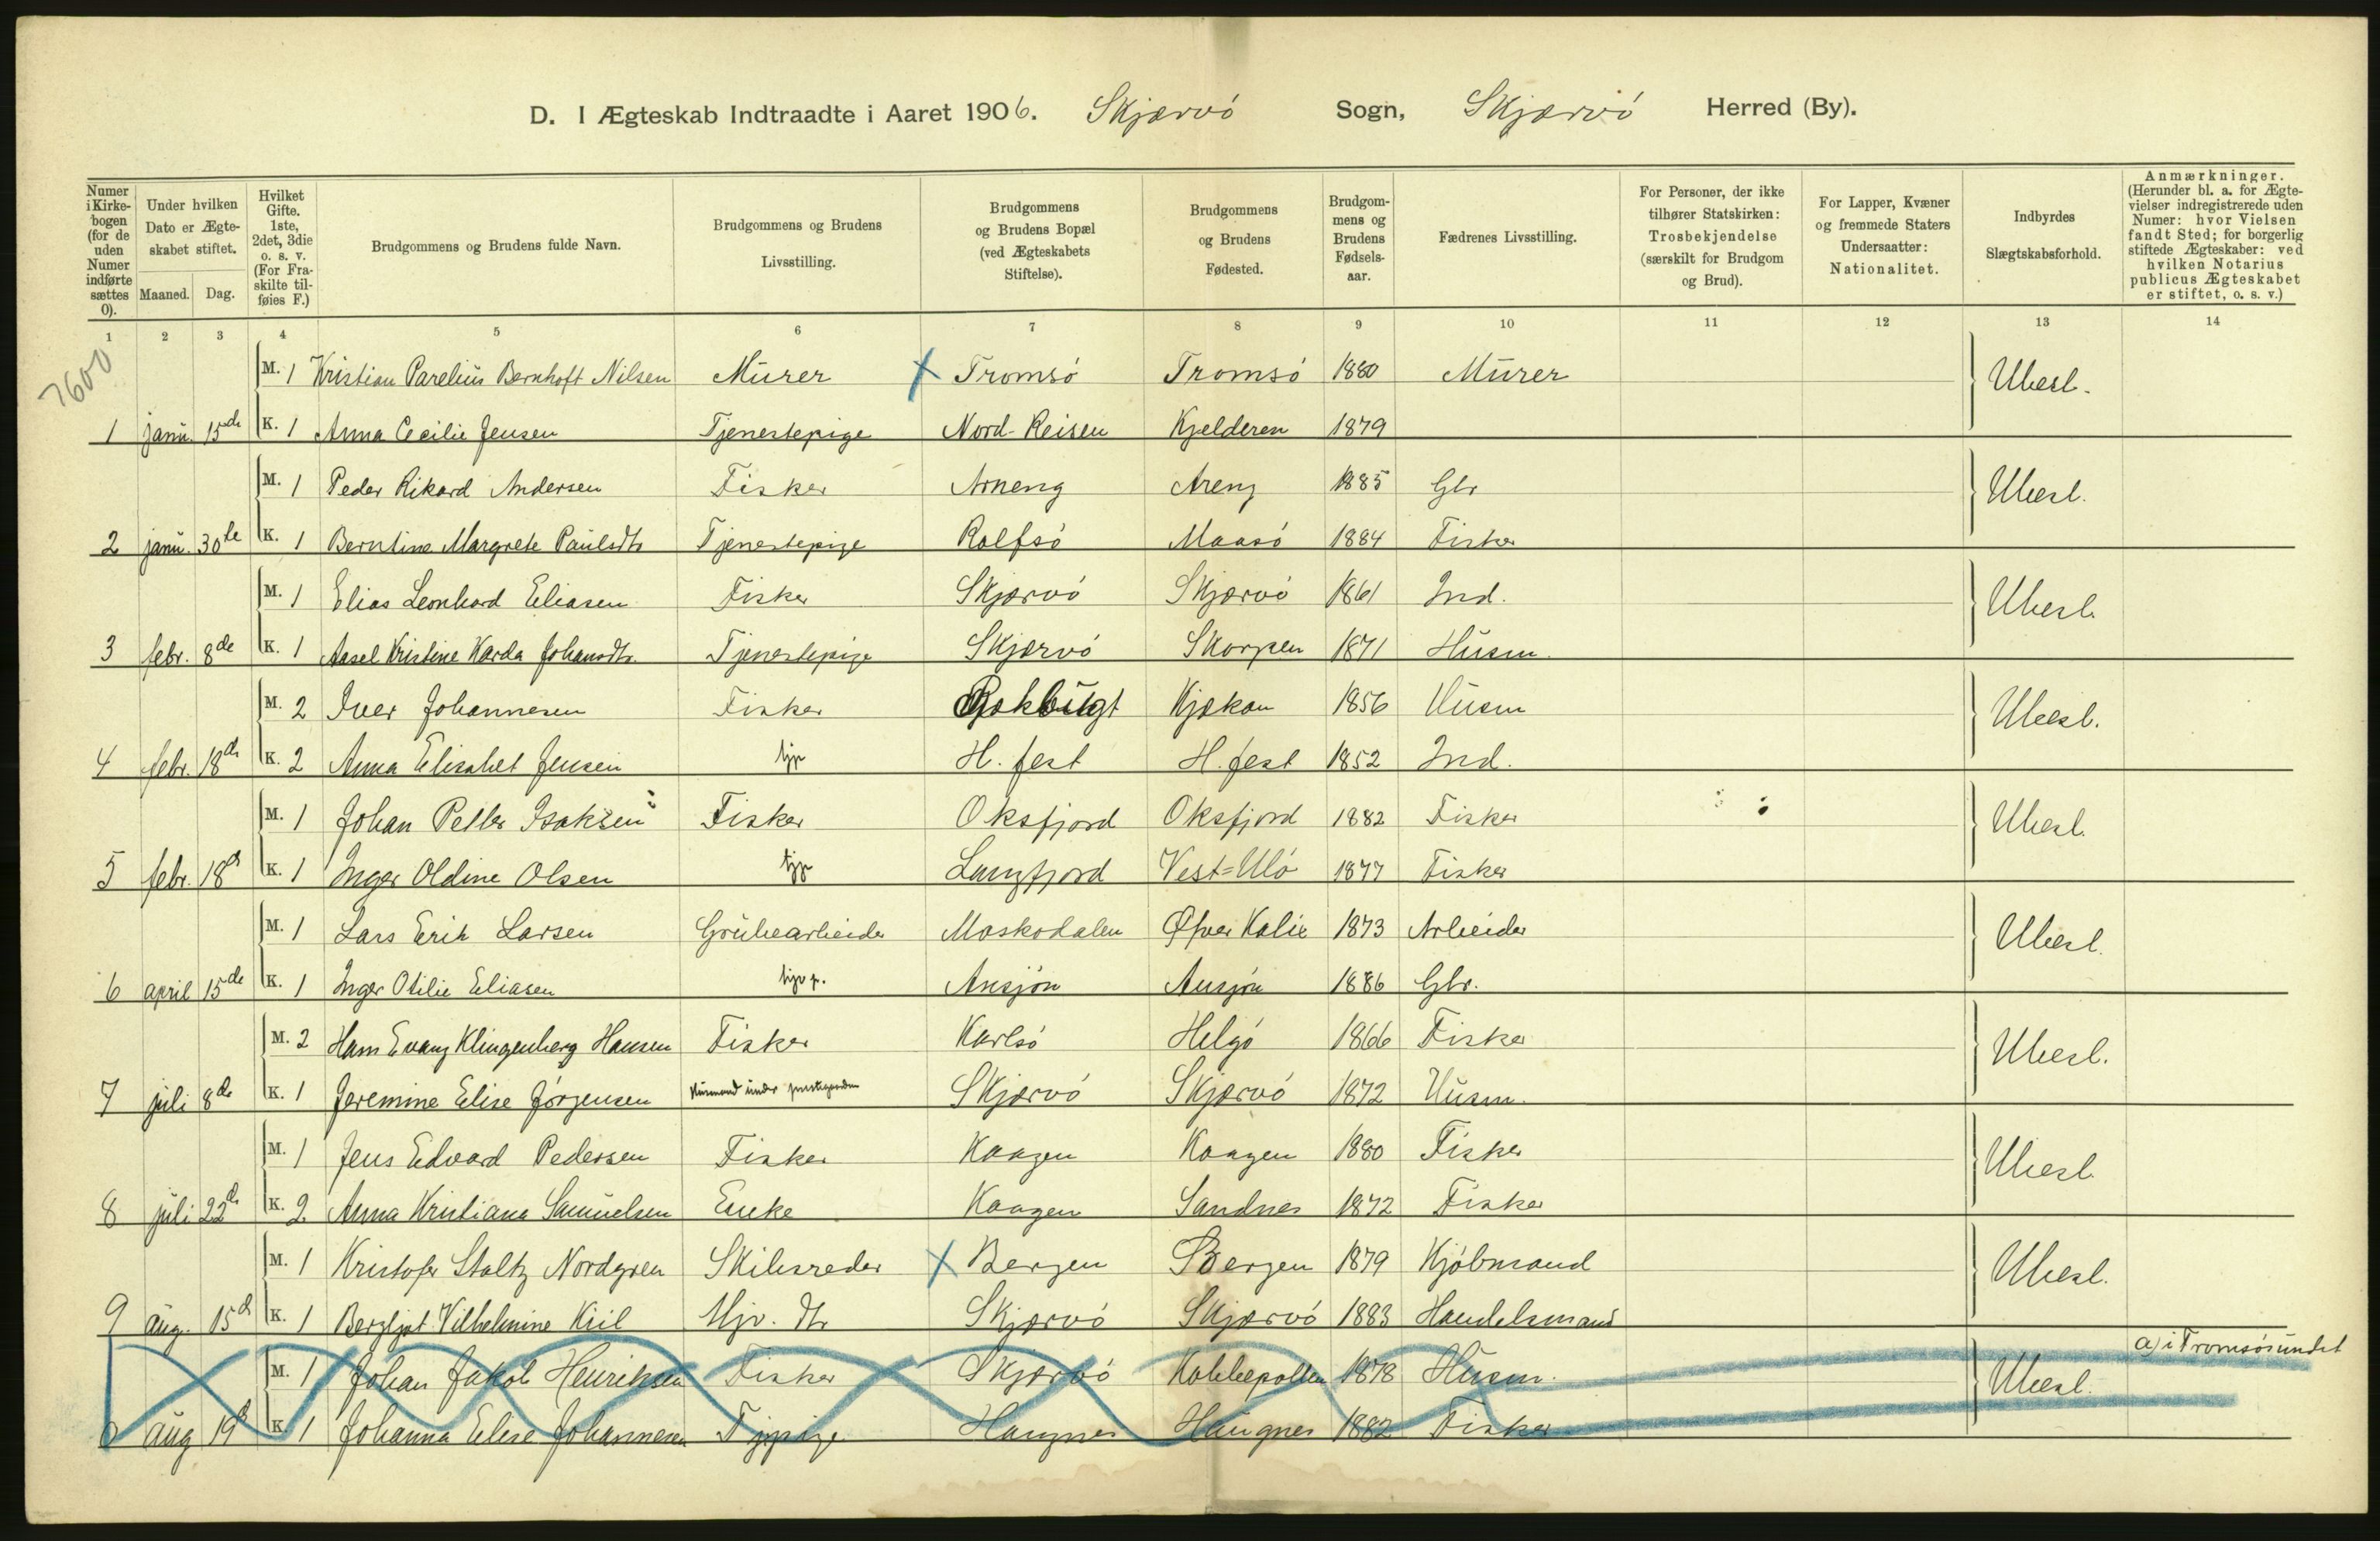 D. I Ægteskab Indtraadte i Aaret 1906. Skjærvö Sogn, Skjærvö Herred (By).
Numer i Kirkebogen (for de uden Numer indførte sættes 0).
Under hvilken Dato er Ægteskabet stiftet.
Maaned. Dag.
Hvilket Gifte. 1ste, 2det, 3die o. s. v. (For Fraskilte tilføies F.)
Brudgommens og Brudens fulde Navn.
Brudgommens og Brudens Livsstilling.
Brudgommens og Brudens Bopæl (ved Ægteskabets Stiftelse).
Brudgommens og Brudens Fødested.
Brudgommens og Brudens Fødselsaar.
Fædrenes Livsstilling.
For Personer, der ikke tilhører Statskirken: Trosbekjendelse (særskilt for Brudgom og Brud).
For Lapper, Kvæner og fremmede Staters Undersaatter: Nationalitet.
Indbyrdes Slægtskabsforhold.
Anmærkninger. (Herunder bl. a. for Ægtevielser indregistrerede uden Numer: hvor Vielsen fandt Sted; for borgerlig stiftede Ægteskaber: ved hvilken Notarius publicus Ægteskabet er stiftet, o. s. v.)
1 2 3 4 5 6 7 8 9 10 11 12 13 14
7600
M. 1 Kristian Parelius Bernhoft Nilsen Murer Tromsö Tromsö 1880 Murer Ubesl.
1 janu. 15de K. 1 Anna Cecilie Jensen Tjenestepige Nord-Reisen Kjelderen 1879
M. 1 Peder Rikard Andersen Fisker Arneng Areng 1885 Gbr Ubesl.
2 janu. 30te K. 1 Berntine Margrete Paulsdtr Tjenestepige Rolfsö Maasö 1884 Fisker
M. 1 Elias Leonhard Eliasen Fisker Skjærvö Skjærvö 1861 Ind. Ubesl.
3 febr. 8de K. 1 Aasel Kristine Karda Johansdtr. Tjenestepige Skjærvö Skorpen 1871 Husm.
M. 2 Iver Johannesen Fisker Kjækan 1856 Husm Ubesl.
4 febr. 18d K. 2 Anna Elisabet Jensen tjp H. fest H. fest 1852 Ind.
M. 1 Johan Petter Isaksen Fisker Oksfjord Oksfjord 1882 Fisker Ubesl.
5 febr. 18d K. 1 Inger Oldine Olsen tjp Langfjord Vest=Ulö 1877 Fisker
M. 1 Lars Erik Larsen Grubearbeider Moskodalen Øfver Kalix 1873 Arbeider Ubesl.
6 april 15de K. 1 Inger Otilie Eliasen Ansjön Ansjön 1886 Gbr.
M. 2 Hans Evang Klingenberg Hansen Fisker Karlsö Helgö 1866 Fisker Ubesl.
7 juli 8de K. 1 Jeremine Elise Jörgensen Husmand under prestegaarden Skjærvö Skjærvö 1872 Husm.
M. 1 Jens Edvard Pedersen Fisker Kaagen Kaagen 1880 Fisker Ubesl.
8 juli 22d K. 2. Anna Kristiana Samuelsen Enke Kaagen Sandnes 1872 Fisker
M. 1 Kristofer Staltz Nordgren Skibsreder Bergen Bergen 1879 Kjöbmand Ubesl.
9 aug. 15d K. 1 Bergljot Vilhelmine Kiil Hjv. dtr Skjærvö Skjærvö 1883 Handelsmand
M. 1 Johan Jakob Henriksen Fisker Skjærvö Kobbepollen 1878 Husm. Ubesl. a) i Tromsösundet
aug 19d K 1 Johanna Elise Johannesen Tjpige Haugnes Haugnes 1882 Fisker